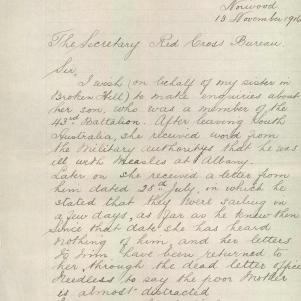 Norwood
13 November 1916
The Secretary Red Cross Bureau.
Sir,
I wish (on behalf of my sister in
Broken Hill) to make enquiries about
her son, who was a member of the
43rd Battalion. After leaving South
Australia, she received word from
the Military Authoritys that he was
ill with Measles at Albany.
Later on she received a letter from
him dated 25th July, in which he
stated that they were sailing in
a few days, as far as he knew then
Since that date she has heard
nothing of him, and her letters
to him, have been returned to
her, through the dead letter office
Needless to say the poor Mother
is almost distracted